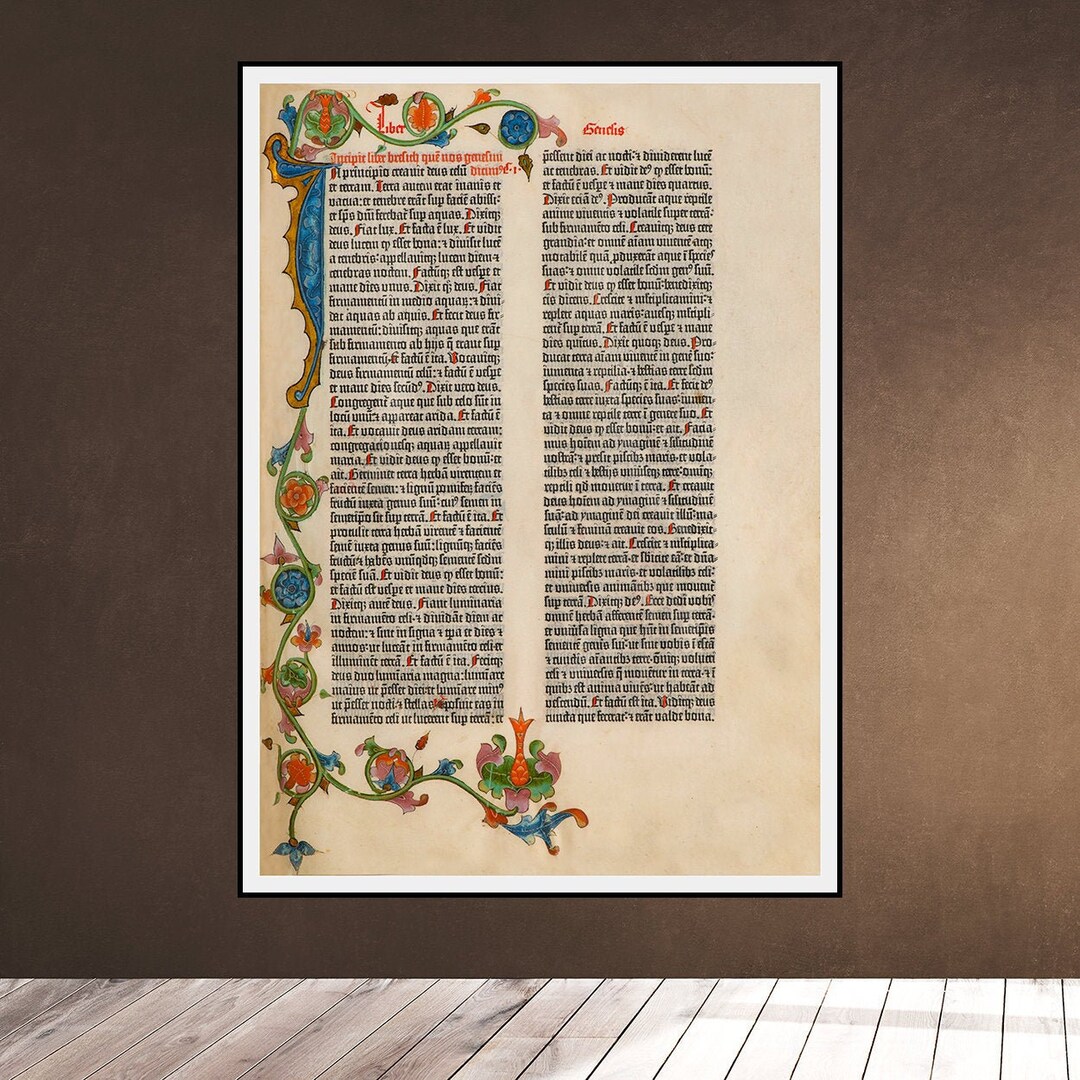 Liber Genesis
Incipit liber bresith quē nos genesim
In principio creavit deus celū dicimꝰ C·i·
et terram. Terra autem erat inanis et
vacua: et tenebre erāt sup faciē abissi:
et spūs dn̄i ferebat̄ sup aquas. Dixitqꝫ
deus. Fiat lux. Et facta ē lux. Et vidit
deus lucem ꝙ esset bona: ⁊ divisit lucē
a tenebris: appellavitqꝫ lucem diem ⁊
tenebras noctem. Factūqꝫ est vespe et
mane dies unus. Dixit qꝫ deus. Fiat
firmamentū in medio aquaꝝ: ⁊ divi-
dat aquas ab aquis. Et fecit deus fir-
mamentū: divisitqꝫ aquas que erāt
sub firmamento ab hijs q̄ erant sup
firmamentū: et factū ē ita. Vocavitqꝫ
deus firmamentū celū: ⁊ factū ē vespe
et mane dies secūdꝰ. Dixit vero deus.
Congregent̄ aque que sub celo sūt in
locū unū ⁊ appareat arida. Et factū ē
ita. Et vocavit deus aridam terram:
congregacionesqꝫ aquaꝝ appellavit
maria. Et vidit deus ꝙ esset bonū: et
ait. Germinet terra herbā virentem et
facientē semen: ⁊ lignū pomiferū faciēs
fructū iuxta genus suū: cuiꝰ semen in
semetipso sit sup terrā. Et factū ē ita. Et
protulit terra herbā virentē ⁊ facientē
semē iuxta genus suū: lignūqꝫ faciēs
fructū ⁊ habēs unūqdqꝫ sementē scdm
speciē suā. Et vidit deus ꝙ esset bonū:
et factū est vespe et mane dies tercius.
Dixitqꝫ autē deus. Fiant luminaria
in firmamēto celi: ⁊ dividāt diem ac
noctem: ⁊ sint in signa ⁊ tꝑa et dies ⁊
annos: ut luceāt in firmamēto celi et
illuminēt terrā. Et factū ē ita. Fecitqꝫ
deus duo luminaria magna: luminare
maius ut p̄esset diei: et luminare minꝰ
ut p̄esset nocti: ⁊ stellas: ⁊ posuit eas in
firmamēto celi ut lucerent sup terrā: et
p̄essent diei ac nocti: ⁊ dividerent lucē
ac tenebras. Et vidit deꝰ ꝙ esset bonū:
et factū ē vespe ⁊ mane dies quartus.
Dixit eciā deꝰ. Producant aque reptile
anime viventis ⁊ volatile super terrā:
sub firmamento celi. Creavitqꝫ deus cete
grandia: et omnē aīam viventē atqꝫ
motabilē quā ꝓduxerāt aque ī species
suas: ⁊ omne volatile scdm genꝰ suū.
Et vidit deus ꝙ esset bonū: benedixitqꝫ
eis dicens. Crescite ⁊ mltiplicamini: ⁊
replete aquas maris: avesqꝫ mltipli-
cent̄ sup terrā. Et factū ē vespe ⁊ mane
dies quītus. Dixit quoqꝫ deus. Pro-
ducat terra aīam viventē in genē suo:
iumenta ⁊ reptilia: ⁊ bestias terre scdm
species suas. Factūqꝫ ē ita. Et fecit deꝰ
bestias terre iuxta species suas: iumen-
ta ⁊ omne reptile terre ī genere suo. Et
vidit deus ꝙ esset bonū: et ait. Facia-
mus hoīem ad ymaginē ⁊ silitudinē
nostrā: ⁊ presit piscibꝫ maris: et vola-
tilibꝫ celi ⁊ bestijs universeqꝫ terre: omīqꝫ
reptili qd movetur ī terra. Et creavit
deus hoīem ad ymaginē ⁊ silitudinē
suā: ad ymaginē dei creavit illū: ma-
sculū ⁊ feminā creavit eos. Benedixit-
qꝫ illis deus: ⁊ ait. Crescite ⁊ mltiplica-
mini ⁊ replete terrā: et sbicite eā: et dn̄a-
mini piscibꝫ maris: et volatilibꝫ celi:
et universis animātibꝫ que moventˀ
sup terrā. Dixitqꝫ deꝰ. Ecce dedi vobis
omnē herbā afferentē semen sup terrā:
et univsa ligna que hn̄t in semetipsis
sementē genis sui: ut sint vobis ī escā
⁊ cunctis aīantibꝫ terre: oīniqꝫ volucri
celi ⁊ universis q̄ moventur in terra: ⁊ ī
quibꝫ est anima vivēs: ut habeāt ad
vescendū. Et factū est ita. Viditqꝫ deus
cuncta que fecerat: ⁊ erāt valde bona.